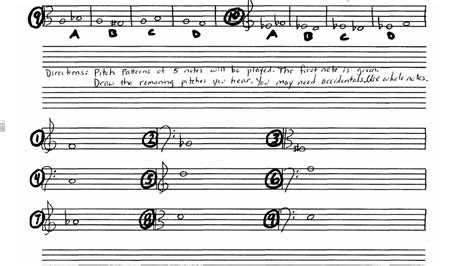 9 10
A B C D A B C D
Directions: Pitch Patterns of 5 notes will be played. The first note is given.
Draw the remaining pitches you hear. You may need accidentals. Use whole notes.
1 2 3
4 5 6
7 8 9